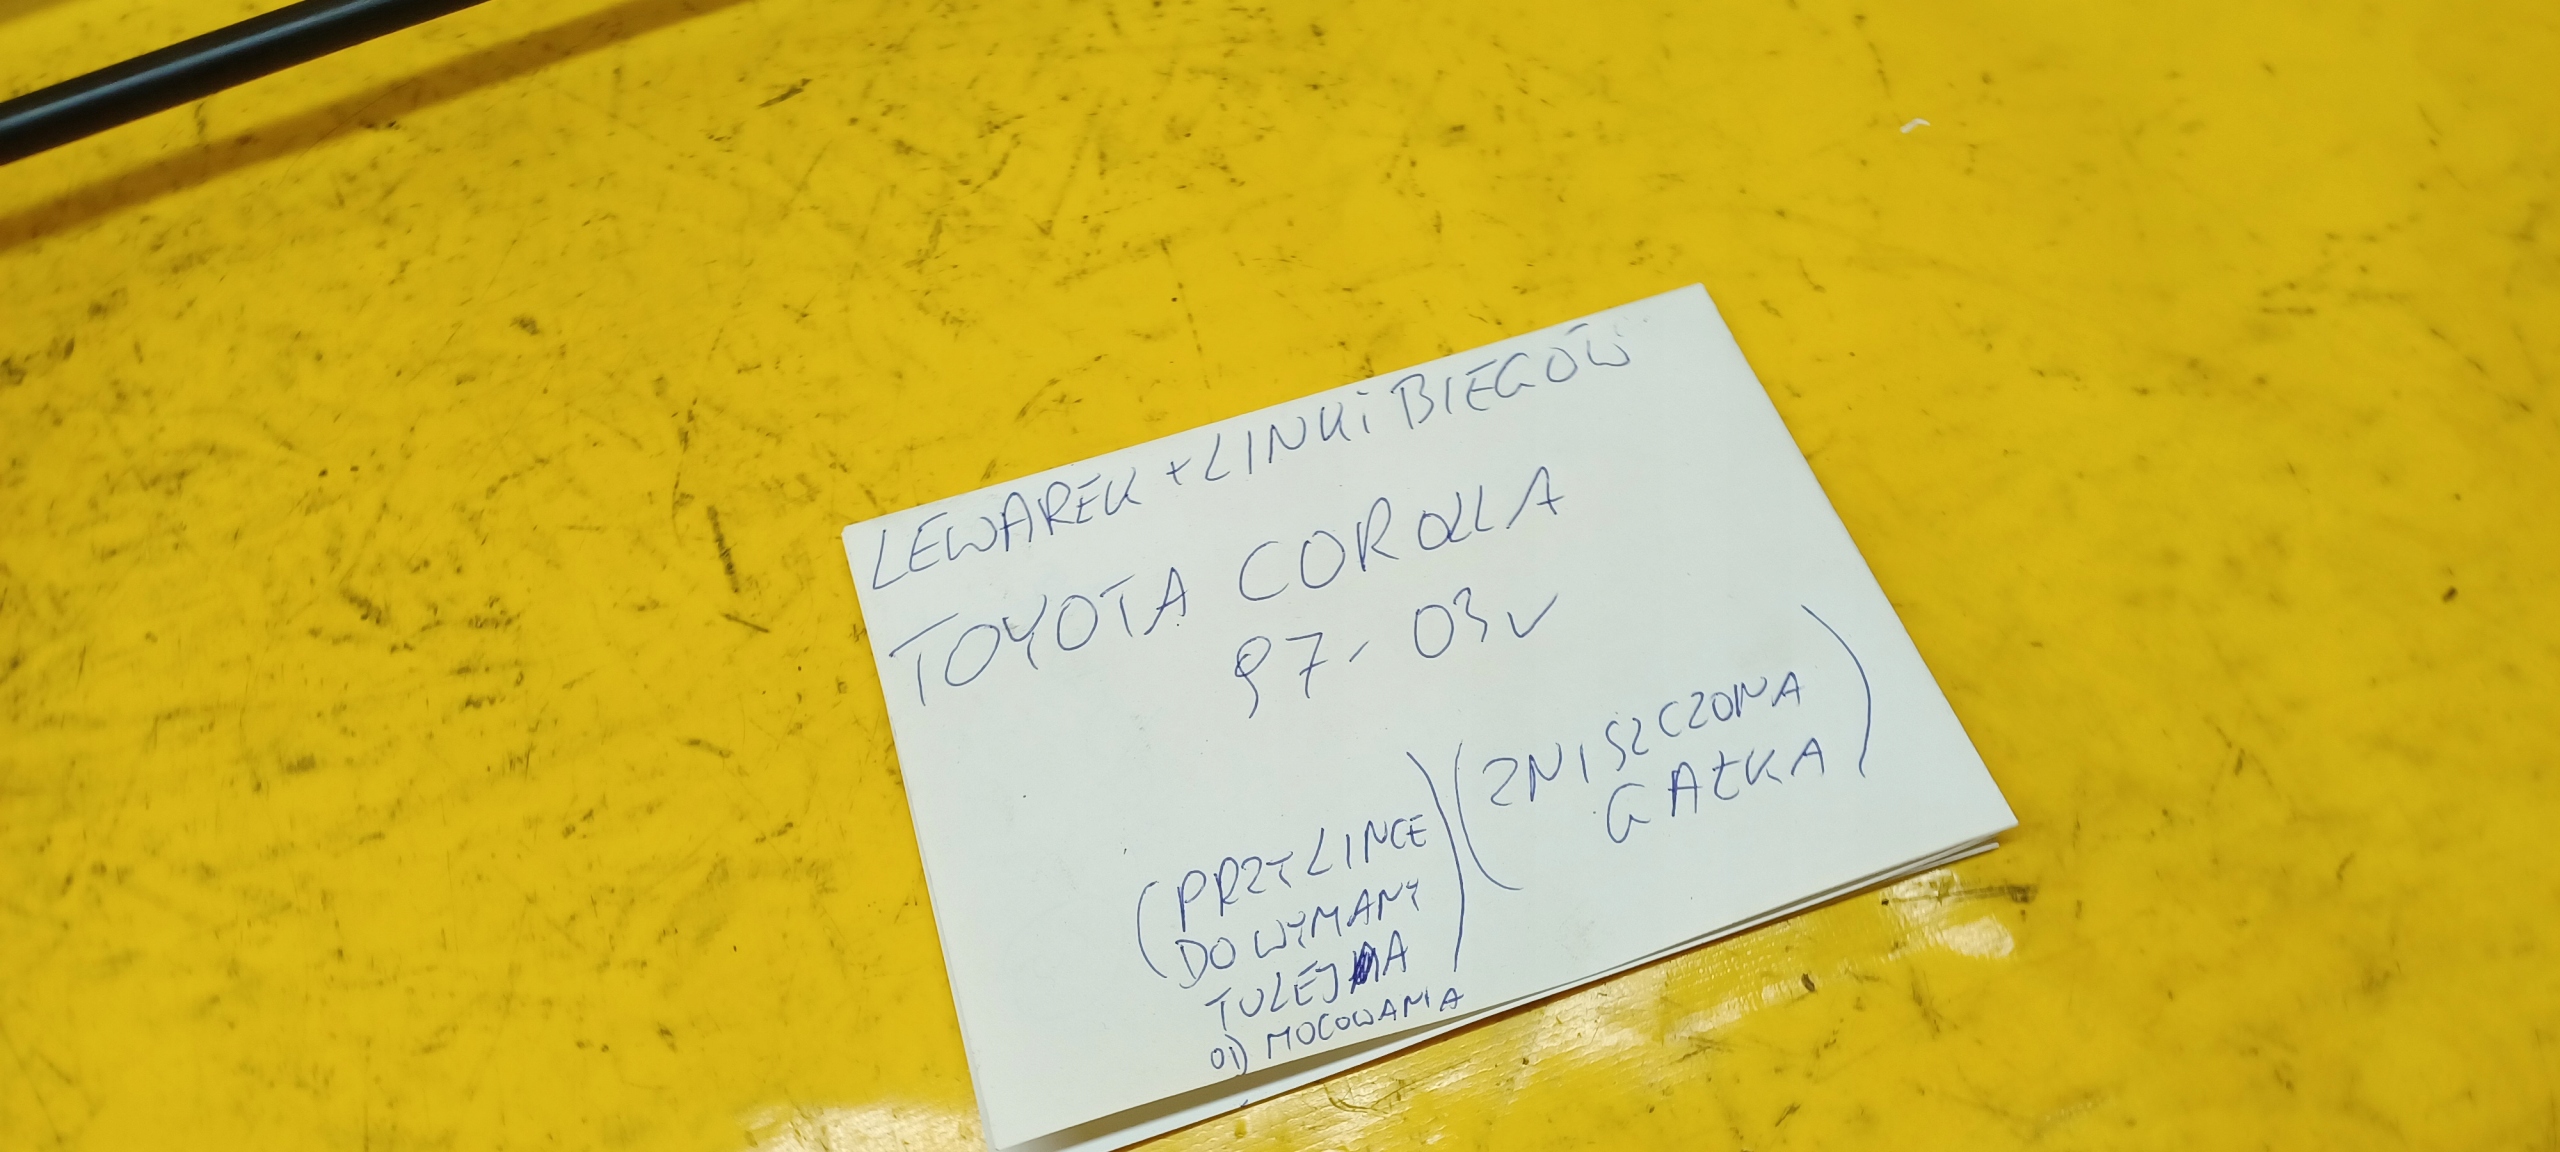 LEWAREK + LINKI BIEGÓW
TOYOTA COROLLA
97-03r
(ZNISZCZONA
GAŁKA)
(PRZY LINCE
DO WYMANY
TULEJKA)
OD MOCOWANIA